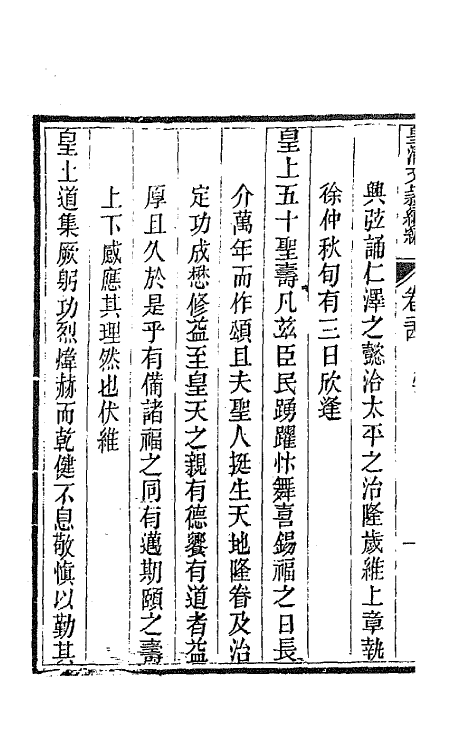 皇清文穎續編
卷
興弦誦仁澤之懿洽太平之治隆歲維上章執
徐仲秋旬有三日欣逢
皇上五十聖壽凡茲臣民踴躍忭舞喜錫福之日長
介萬年而作頌且夫聖人挺生天地隆眷及治
定功成懋修益至皇天之親有德饗有道者益
厚且久於是乎有備諸福之同有邁期頤之壽
上下感應其理然也伏維
皇上道集厥躬功烈煒赫而乾健不息敬慎以勤其